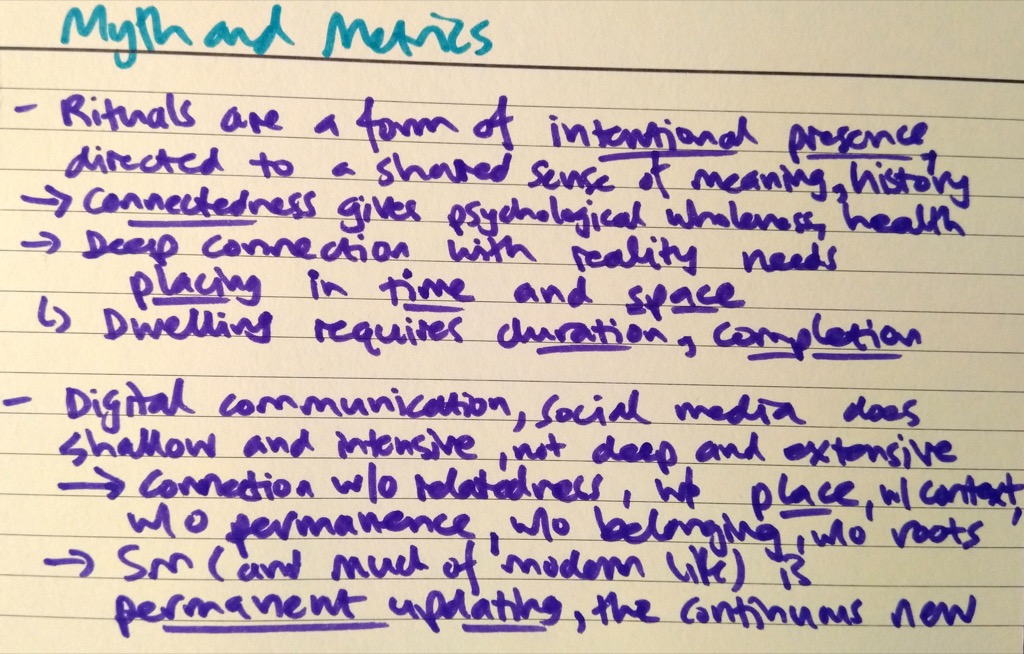 Myth and Metrics
- Rituals are a form of intentional presence,
directed to a shared sense of meaning, history
→ Connectedness gives psychological wholeness, health
→ Deep connection with reality needs
placing in time and space
↳ Dwelling requires duration, completion
- Digital communication, social media does
shallow and intensive, not deep and extensive
→ Connection w/o relatedness, w/o place, w/ context,
w/o permanence, w/o belonging, w/o roots
→ Sm (and much of modern life) is
permanent updating, the continuous new